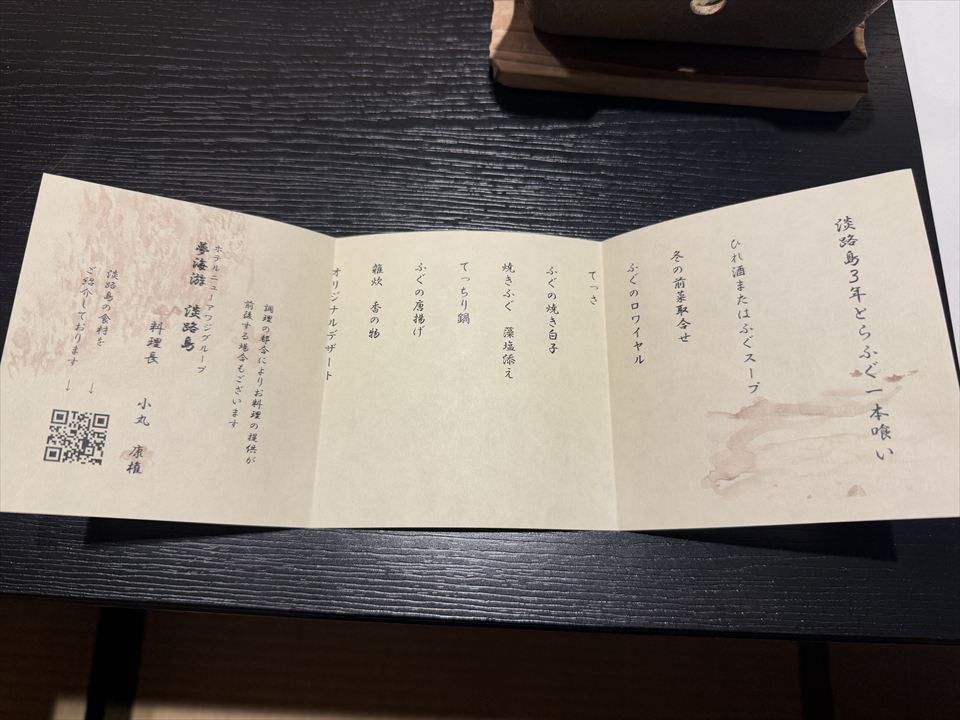 淡路島3年とらふぐ一本喰い
ひれ酒またはふぐスープ
冬の前菜取合せ
ふぐのロワイヤル
てっさ
ふぐの焼き白子
焼きふぐ 藻塩添え
てっちり鍋
ふぐの唐揚げ
雑炊 香の物
オリジナルデザート
調理の都合によりお料理の提供が
前後する場合もございます
ホテルニューアワジグループ
夢海游 淡路島
料理長 小丸 康植
淡路島の食材を
ご紹介しております
↓ ↓